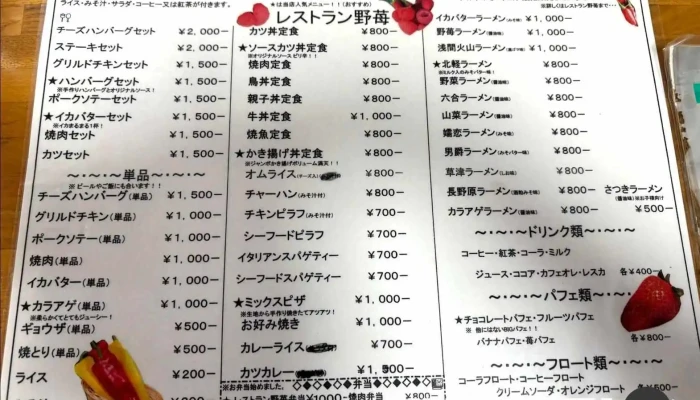 ライス・みそ汁・サラダ・コーヒー又は紅茶が付きます。
チーズハンバーグセット ￥2,000−
ステーキセット ￥2,000−
グリルドチキンセット ￥1,500−
★ハンバーグセット ￥1,500−
※手作りハンバーグとオリジナルソース！
ポークソテーセット ￥1,500−
★イカバターセット ￥1,500−
※イカまるまる1杯！
焼肉セット ￥1,500−
カツセット ￥1,500−
〜・〜・単品〜・〜・
※ビールやご飯にも合います！！
チーズハンバーグ(単品) ￥1,500−
グリルドチキン(単品) ￥1,000−
ポークソテー(単品) ￥1,000−
焼肉(単品) ￥1,000−
イカバター(単品) ￥1,000−
★カラアゲ(単品) ￥1,000−
※柔らかくてとてもジューシー！
ギョウザ(単品) ￥500−
焼とり(単品) ￥500−
ライス ￥200−
★は当店人気メニュー！！(おすすめ)
レストラン野苺
カツ丼定食 ￥800−
★ソースカツ丼定食 ￥800−
※オリジナルソース ピリ辛！！
焼肉定食 ￥800−
鳥丼定食 ￥800−
親子丼定食 ￥800−
牛丼定食 ￥1,000−
焼魚定食 ￥800−
★かき揚げ丼定食 ￥800−
※ジャンボかき揚げボリューム満天！！
オムライス(チーズ入) ￥800−
チャーハン(みそ汁付) ￥800−
チキンピラフ(みそ汁付) ￥700−
シーフードピラフ ￥700−
イタリアンスパゲティー ￥700−
シーフードスパゲティー ￥700−
★ミックスピザ ￥1,000−
※生地から手作り焼きたてアツアツ！
お好み焼き ￥1,000−
カレーライス ￥700−
カツカレー ￥1,000−
※お弁当始めました。 ◇◆◇◆◇◆弁当◆◇◆◇◆◇
★レストラン野苺弁当￥1000− 焼肉弁当 ￥800−
※詳しくはレストラン野苺まで・・・
イカバターラーメン(みそ味) ￥1,000−
野苺ラーメン(醤油味) ￥1,000−
浅間火山ラーメン ￥1,000−
★北軽ラーメン ￥800−
※ミルク入のみそバター味！
野菜ラーメン(醤油味) ￥800−
六合ラーメン(醤油味) ￥800−
山菜ラーメン(醤油味) ￥800−
嬬恋ラーメン(みそ味) ￥800−
男爵ラーメン(みそバター味) ￥800−
草津ラーメン(しお味) ￥800−
長野原ラーメン ￥800− さつきラーメン
(醤油味)※お子様向け
カラアゲラーメン(醤油味) ￥800− ￥500−
〜・〜・〜ドリンク類〜・〜・〜
コーヒー・紅茶・コーラ・ミルク
ジュース・ココア・カフェオレ・レスカ 各￥400−
〜・〜・〜パフェ類〜・〜・〜
★チョコレートパフェ・フルーツパフェ
※ 他にはないBIGパフェ！！
バナナパフェ・苺パフェ 各￥800−
〜・〜・〜フロート類〜・〜・〜
コーラフロート・コーヒーフロート
クリームソーダ・オレンジフロート 各￥500−